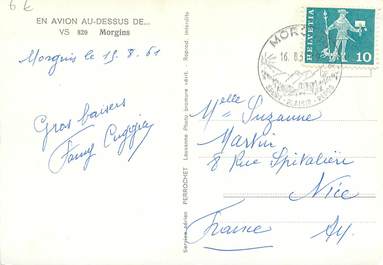 6 €
EN AVION AU-DESSUS DE...
VS 820 Morgins
Morgins le 15.8.61
Gros baisers
Fanny
Service aérien PERROCHET Lausanne Photo bromure vérit. Reprod interdite
HELVETIA
10
MORGINS
16.8.
Melle Suzanne
Martin
8 Rue Spitalieri
Nice
France AM.